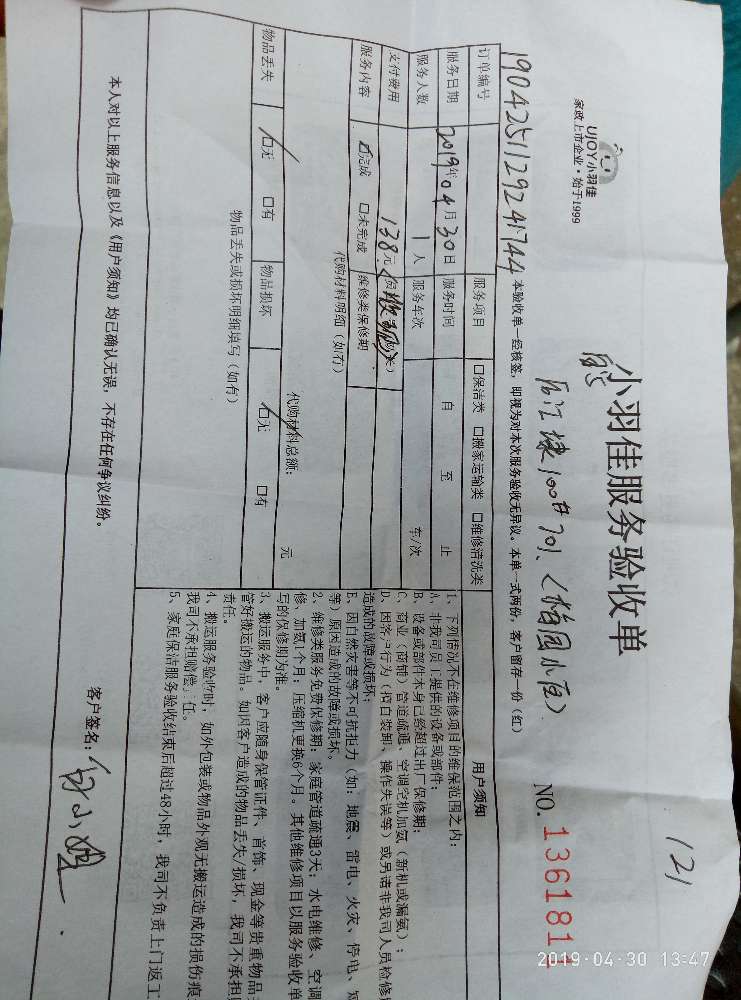 121
UJOY小羽佳
家政上市企业·始于1999
小羽佳服务验收单
100# 701（梅园小区）
NO. 1361811
1904251129241744
本验收单一经核签，即视为对本次服务验收无异议。本单一式两份，客户留存一份（红）
订单编号
服务项目 口保洁类 口搬家运输类 口维修清洗类
服务日期 2019年04月30日 服务时间 自 至 止
服务人数 1人 服务车次 车/次
支付费用 138元
服务内容 ☑完成 口未完成 维修类保修期
代购材料明细（如有）
代购材料总额： 元
物品丢失 ☑无 口有 物品损坏 ☑无 口有
物品丢失或损坏明细填写（如有）
用户须知
1、下列情况不在维修项目的维保范围之内：
A、非我司员工提供的设备或部件；
B、设备或部件本身已经超过出厂保修期；
C、商业（商铺）管道疏通、空调空机加氨（新机或漏氨）；
D、因客户行为（擅自装卸、操作失误等）或另请非我司人员检修
造成的故障或损坏；
E、因自然灾害等不可抗拒力（如：地震、雷电、火灾、停电、
等）原因造成的故障或损坏。
2、维修类服务免费保修期：家庭管道疏通3天；水电维修、空调
修、加氨1个月；压缩机更换6个月。其他维修项目以服务验收单
写的保修期为准。
3、搬运服务中，客户应随身保管证件、首饰、现金等贵重物品
管好搬运的物品。如因客户造成的物品丢失/损坏，我司不承担
责任。
4、搬运服务验收时，如外包装或物品外观无搬运造成的损伤痕
我司不承担赔偿责任。
5、家庭保洁服务验收结束后超过48小时，我司不负责上门返工
本人对以上服务信息以及《用户须知》均已确认无误，不存在任何争议纠纷。
客户签名：
2019-04-30 13:47